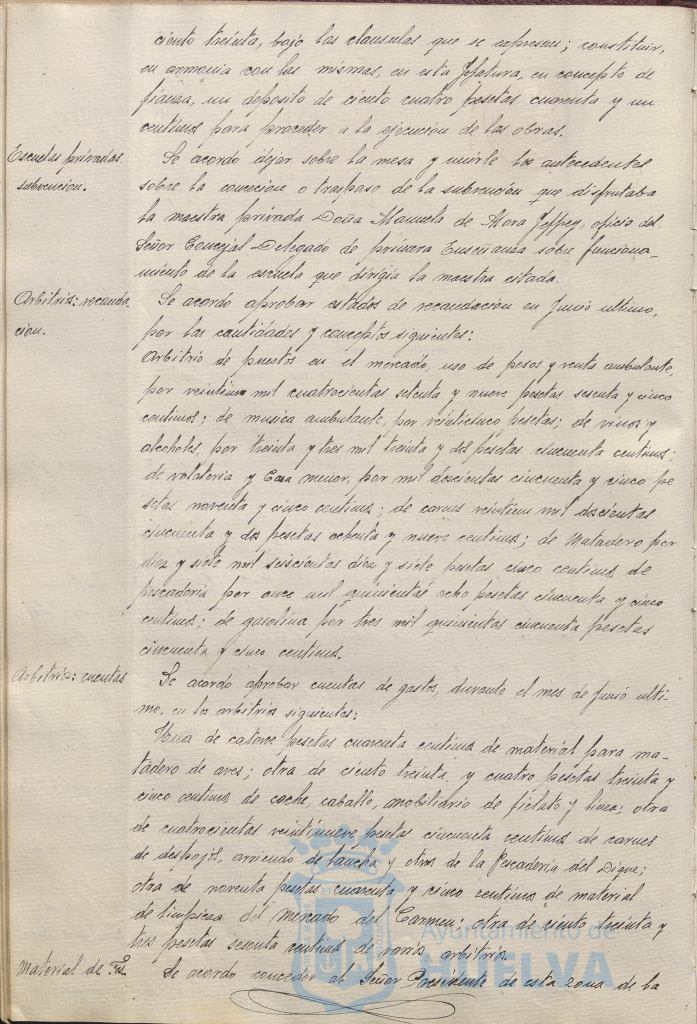 ciento treinta, bajo las clausulas que se expresan; constituir,
en armonia con las mismas, en esta Jefatura, en concepto de
fianza, un deposito de ciento cuatro pesetas cuarenta y un
centimos para proceder a la ejecucion de las obras.
Escuelas privadas
subvencion.
Se acordo dejar sobre la mesa y unirle los antecedentes
sobre la concesion o traspaso de la subvencion que disfrutaba
la maestra privada Doña Manuela de Mora Jeffrey, oficio del
Señor Concejal Delegado de primera Enseñanza sobre funciona-
miento de la escuela que dirigia la maestra citada.
Arbitrios: recauda-
cion.
Se acordo aprobar estados de recaudacion en Junio ultimo,
por las cantidades y conceptos siguientes:
Arbitrio de puestos en el mercado, uso de pesos y venta ambulante,
por veintiun mil cuatrocientas setenta y nueve pesetas sesenta y cinco
centimos; de musica ambulante, por veinticinco pesetas; de vinos y
alcoholes, por treinta y tres mil treinta y dos pesetas cincuenta centimos;
de volateria y Caza menor, por mil doscientas cincuenta y cinco pe
setas noventa y cinco centimos; de carnes veintiun mil doscientas
cincuenta y dos pesetas ochenta y nueve centimos; de Matadero por
diez y siete mil seiscientas diez y siete pesetas cinco centimos de
pescaderia por once mil quinientas ocho pesetas cincuenta y cinco
centimos; de gasolina por tres mil quinientas cincuenta pesetas
cincuenta y cinco centimos.
Arbitrios: cuentas
Se acordo aprobar cuentas de gastos, durante el mes de Junio ulti-
mo, en los arbitrios siguientes:
Una de catorce pesetas cuarenta centimos de material para ma-
tadero de aves; otra de ciento treinta y cuatro pesetas treinta y
cinco centimos de coche, caballo, mobiliario de fielato y linea; otra
de cuatrocientas veintinueve pesetas cincuenta centimos de carnes
de despojos, arriendo de lancha y otros de la Pescaderia del Dique;
otra de noventa pesetas cuarenta y cinco centimos de material
de limpieza del mercado del Carmen; otra de ciento treinta y
tres pesetas sesenta centimos de varios arbitrios.
Material de
Se acordo conceder al Señor Presidente de esta zona de la
Ayuntamiento de
HUELVA